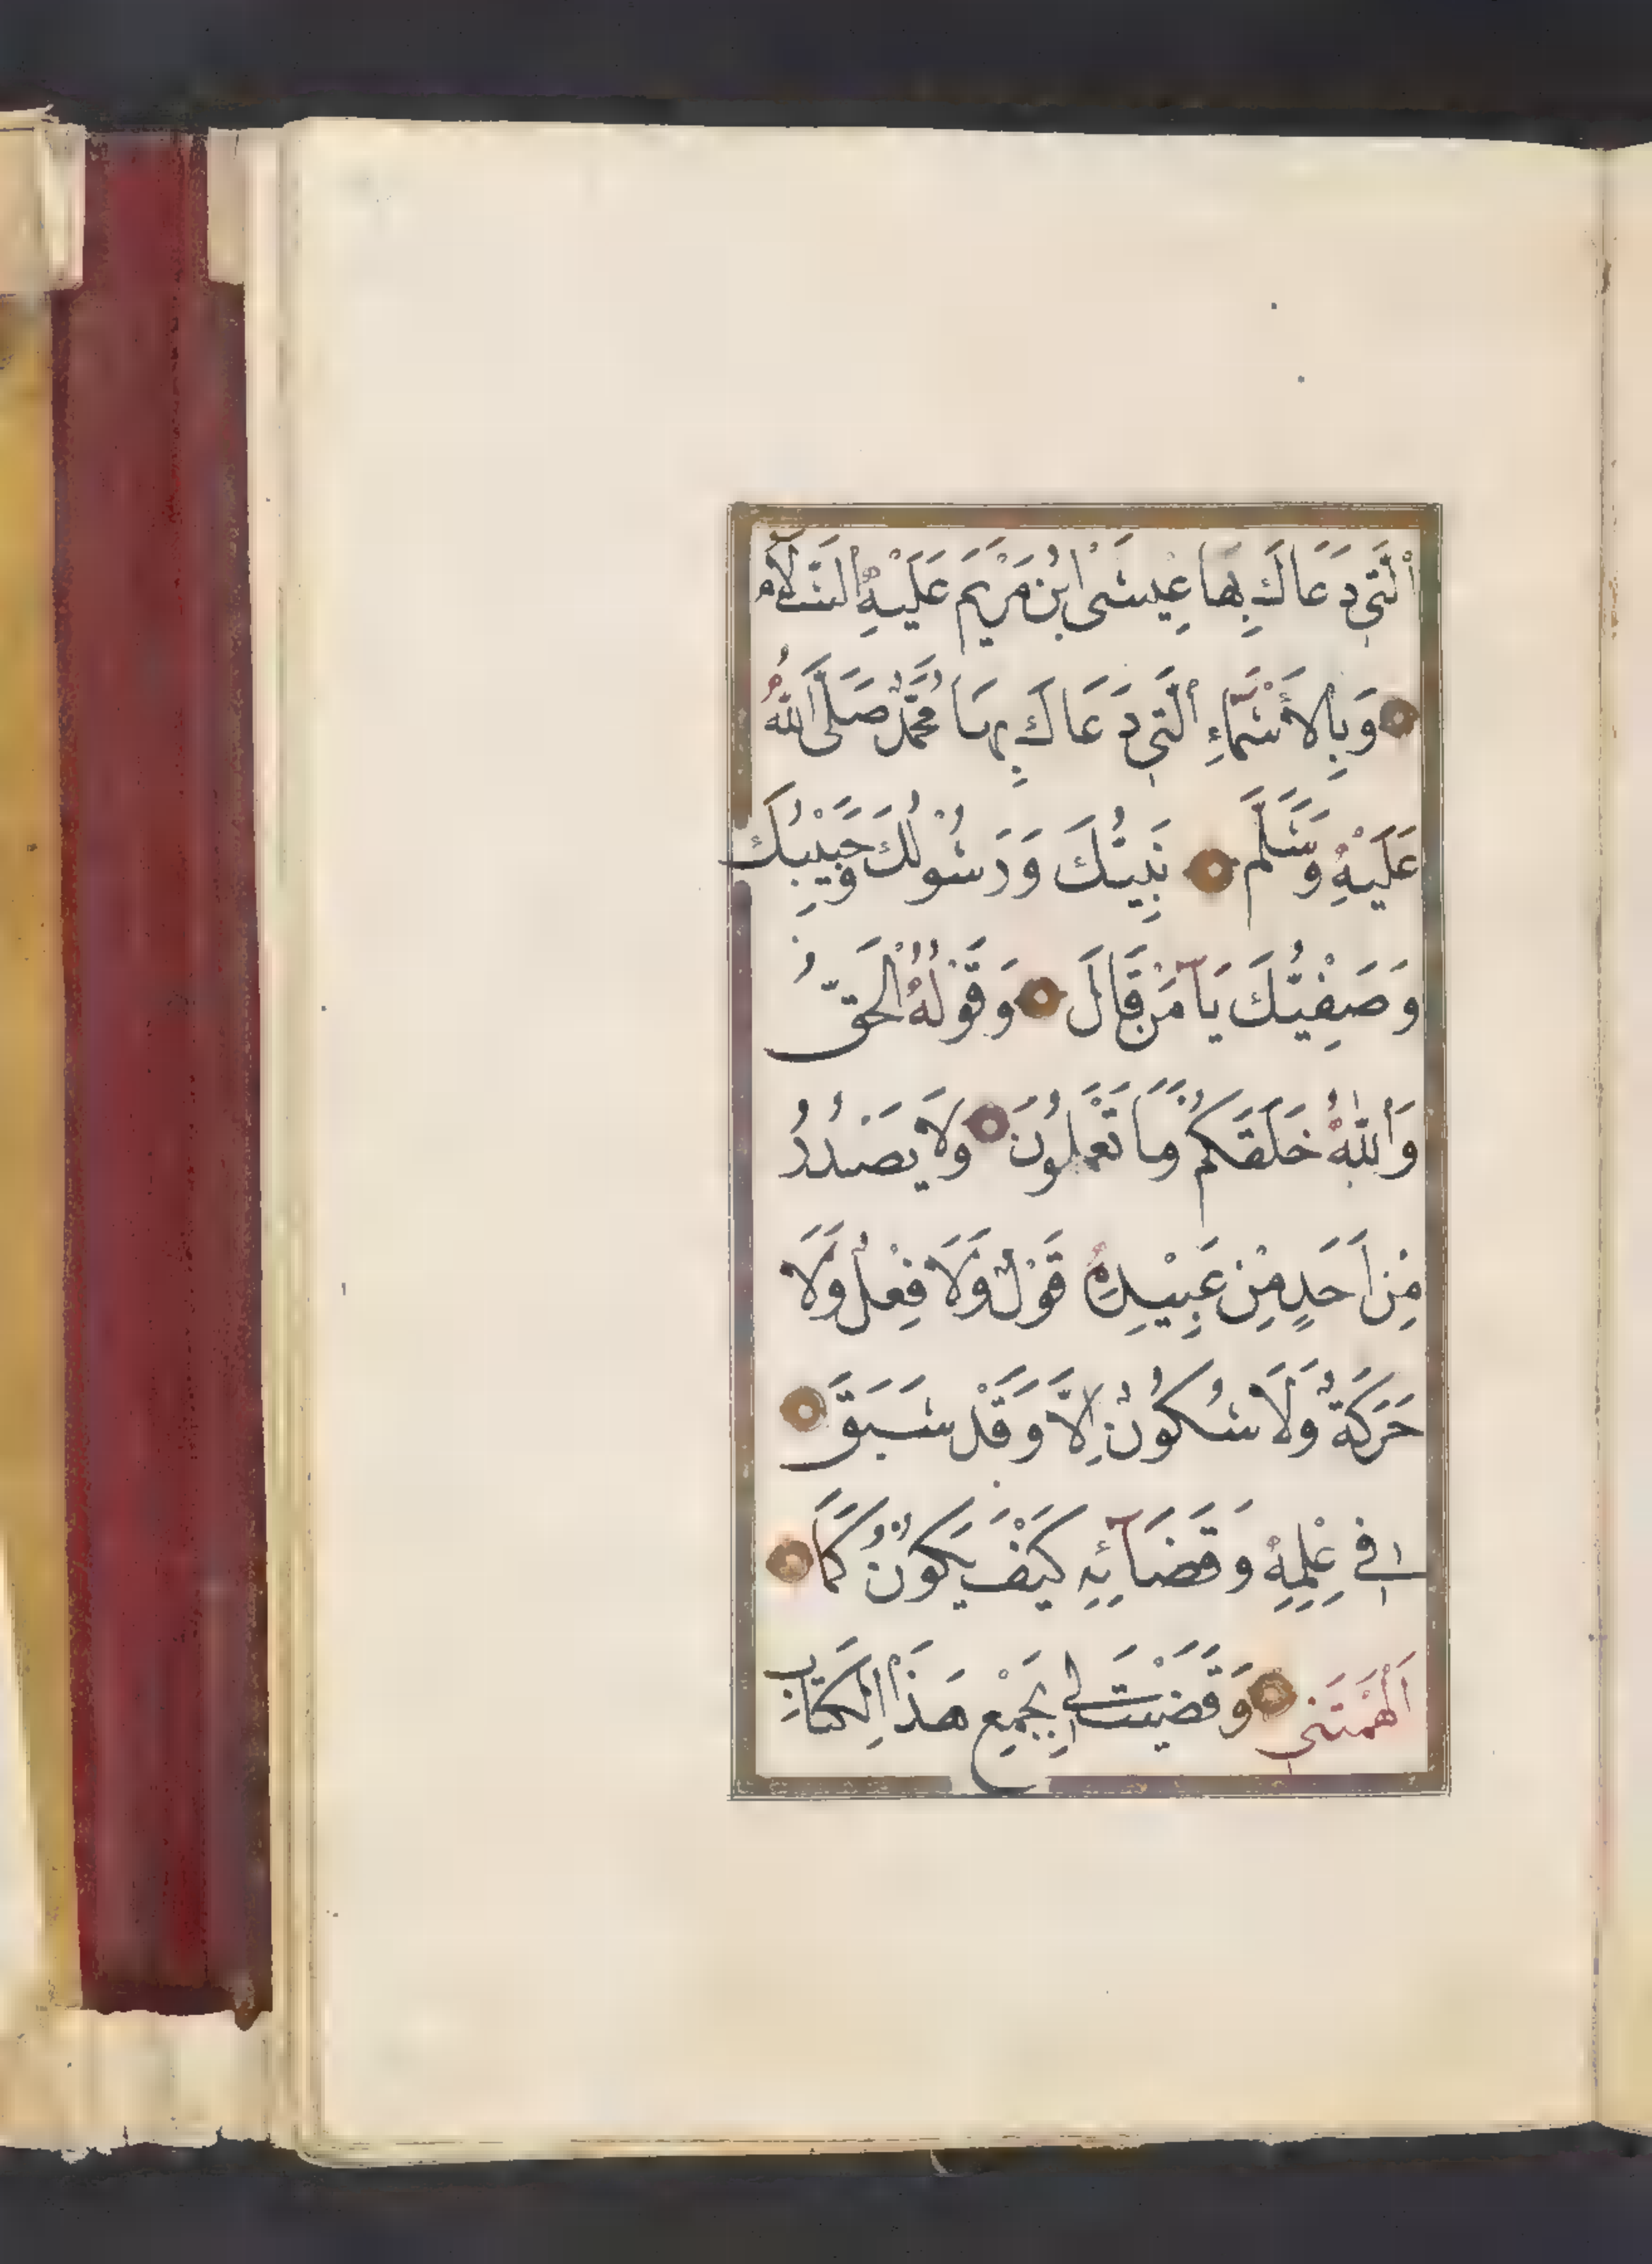 اَلَّتِي دَعَاكَ بِهَا عِيسَى ابْنُ مَرْيَمَ عَلَيْهِ السَّلَامُ
وَبِالْأَسْمَاءِ الَّتِي دَعَاكَ بِهَا مُحَمَّدٌ صَلَّى اللهُ
عَلَيْهِ وَسَلَّمَ نَبِيُّكَ وَرَسُولُكَ وَحَبِيْبُكَ
وَصَفِيُّكَ يَآ مَنْ قَالَ وَقَوْلُهُ الْحَقُّ
وَاللهُ خَلَقَكُمْ وَمَا تَعْمَلُونَ وَلَا يَصْدُرُ
مِنْ اَحَدٍ مِنْ عَبِيْدِهِ قَوْلٌ وَلَا فِعْلٌ وَلَا
حَرَكَةٌ وَلَا سُكُونٌ اِلَّا وَقَدْ سَبَقَ
فِي عِلْمِهِ وَقَضَآئِهِ كَيْفَ يَكُونُ كَمَا
اَلْهَمْتَنِي وَقَضَيْتَ لِي بِجَمْعِ هَذَا الْكِتَابِ